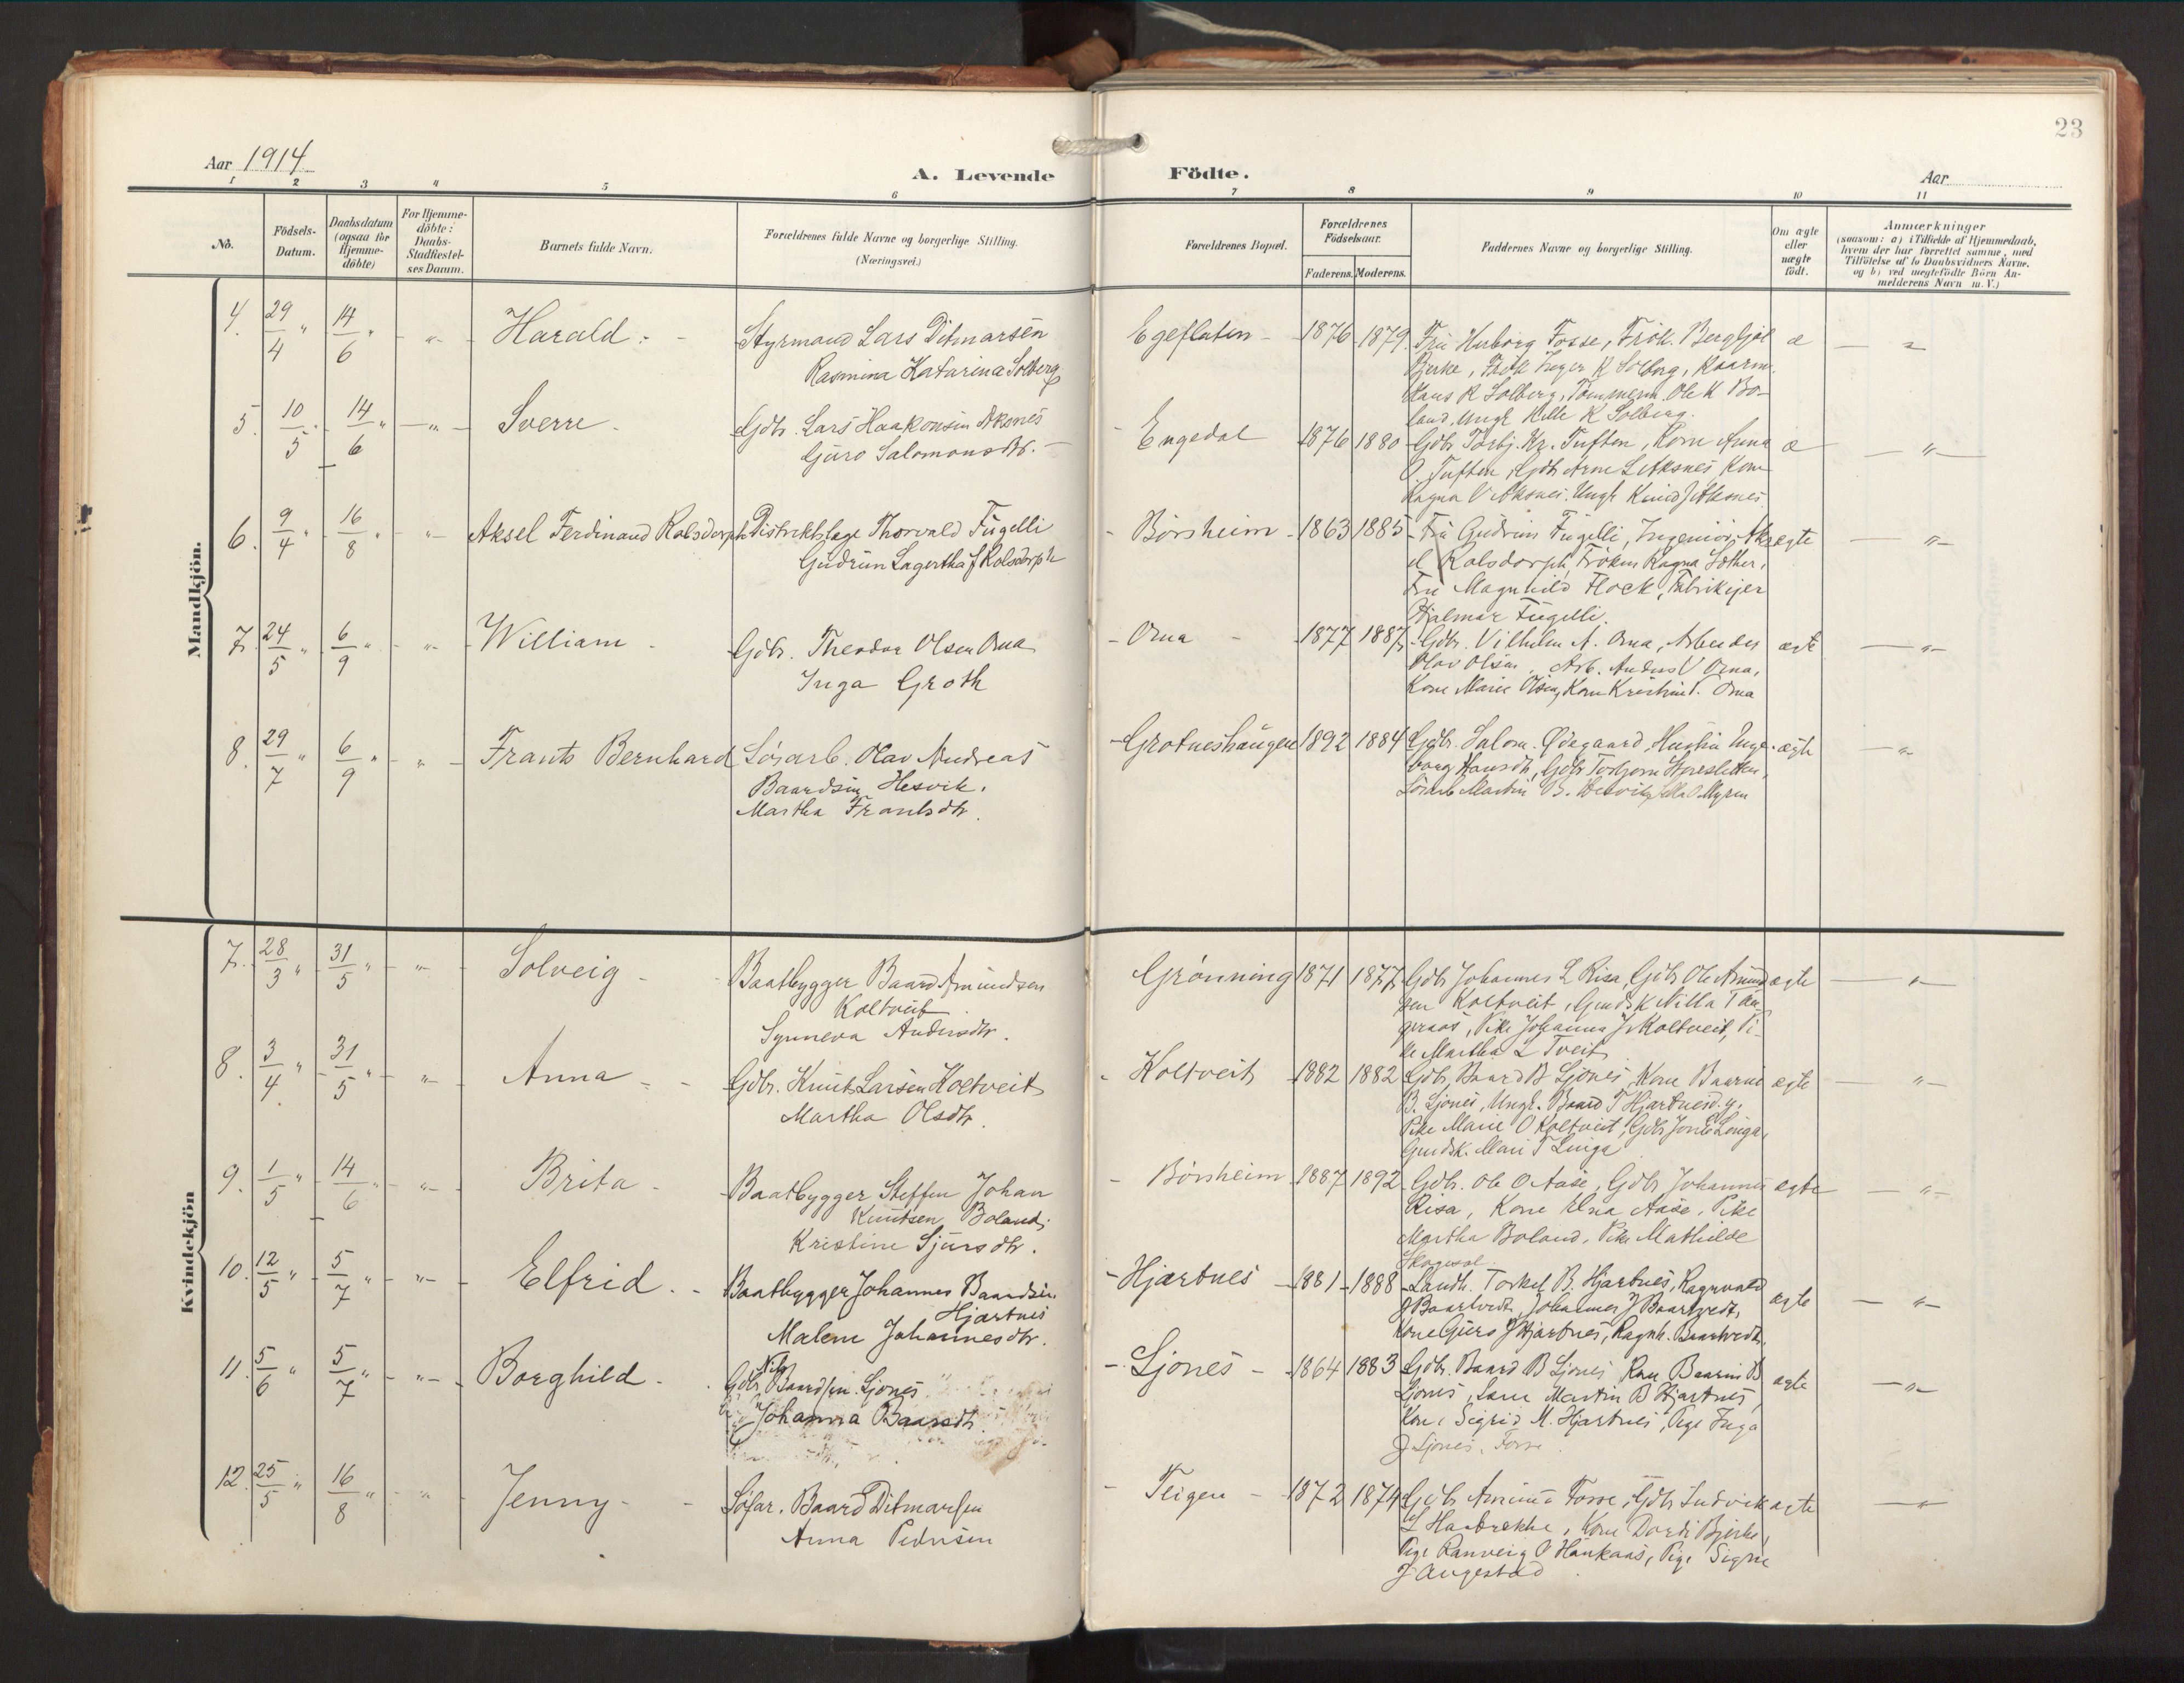 23
Aar 1914
A. Levende Födte.
Aar
1 2 3 4 5 6 7 8 9 10 11
No.
Födsels-Datum.
Daabsdatum (ogsaa for Hjemme-döbte)
For Hjemme-döbte: Daabs-Stadfæstel-ses Datum.
Barnets fulde Navn.
Forældrenes fulde Navne og borgerlige Stilling.
(Næringsvei.)
Forældrenes Bopæl.
Forældrenes Födselsaar.
Faderens. Moderens.
Faddernes Navne og borgerlige Stilling.
Om ægte eller uægte födt.
Anmærkninger
(saasom: a) i Tilfælde af Hjemmedaab,
hvem der har forrettet samme, med
Tilföielse af to Daabsvidners Navne,
og b) ved uægtefödte Börn An-
melderens Navn m.V.)
Mandkjön.
4. 29/4 " 14/6 " " Harald.
Styrmand Lars Ditmarsen
Rasmina Katarina Solberg
Egeflaten 1876 1879
Fru Huborg Fosse, Frök. Bergljot
Bjerke, Frök Inger K Solberg, Kaarm.
Hans R Solberg, Tömmerm. Ole K Bo-
land, Ungk Helle K Solberg.
æ "
5. 10/5 14/6 " " Sverre
Gdbr. Lars Haakonsen Aksnes
Guro Salomonsdtr.
Engedal 1876 1880
Gdbr Torbj. Kr. Tuften, Kone Anna
O. Tuften, Gdbr Arne L Aksnes Kone
Ragna V Aksnes. Ungk Knud J Aksnes
æ "
6. 9/4 " 16/8 " Aksel Ferdinand Rolsdorph
Distriktslæge Thorvald Fügelli
Gudrun Lagertha J Rolsdorph
Börsheim 1863 1885
Fru Gudrun Fugelli, Ingeniör Aks-
el Rolsdorph, Fröken Ragna Sæther,
Fru Magnhild Flock, Fabrikejer
Hjalmar Fugelli.
ægte "
7. 24/5 " 6/9 " " William
Gdbr. Theodor Olsen Oma
Inga Groth
Oma 1877 1887
Gdbr. Vilhelm A. Oma, Arbeider
Olav Olsen, Arb. Anders V Oma,
Kone Marie Olsen, Kone Kristine T. Oma
ægte "
8. 29/7 " 6/9 " " Frants Bernhard
Løsarb. Olav Andreas
Baardsen Hesvik.
Martha Frantsdtr.
Grotneshaugen 1892 1884
Gdbr. Salom. Ødegaard, Hustru Inge-
borg Hansdtr, Gdbr Torbjorn
Lösarb Martin B. Hesvik, Myren
ægte "
Kvindekjön
7. 28/3 " 31/5 " " Solveig
Baatbygger Baard Amundsen
Koltveit
Synneva Andersdtr.
Grönning 1871 1877
Gdbr Johannes L Risa, Gdbr Ole Amund-
sen Koltveit, Gmdsk Nilla Tan-
geraas, Pike Johanna J Koltveit, Pi-
ke Martha L Tveit
ægte "
8. 3/4 " 31/5 " " Anna
Gdbr. Knut Larsen Koltveit
Martha Olsdtr.
Koltveit 1882 1882
Gdbr, Baard B Ljones, Kone Baarni
B. Ljones, Ungk. Baard T Hjartnes d.y.
Pike Marie O Koltveit, Gdbr Jon Linga,
Gmdsk. Mari T Linga
ægte "
9. 1/5 " 14/6 " " Brita
Baatbygger Steffen Johan
Knutsen Boland,
Kristine Sjursdtr.
Börsheim 1887 1892
Gdbr. Ole O Aase, Gdbr Johannes
Risa, Kone Aase, Pike
Martha Boland, Pike Mathilde
Skogesal
ægte "
10. 12/5 " 5/7 " " Elfrid
Baatbygger Johannes Baardsen
Hjartnes
Malene Johannesdtr.
Hjartnes 1881 1888
Landh. Torkel B. Hjartnes, Ragnvald
J Baartvedt, Johannes J Baartvedt,
Kone Guro J Hjartnes, Ragnh. Baartvedt.
ægte "
11. 5/6 " 5/7 " " Borghild
Nils
Gdbr Baardsen Ljones
Johanna Baardsdtr.
Ljones 1864 1883
Gdbr. Baard B Ljones Kone Baarni B
Ljones, Martin B Hjartnes,
Kone Sigrid M. Hjartnes, Pige Inga
J Ljones, Fosse
ægte "
12. 25/5 " 16/8 " " Jenny
Søfar. Baard Ditmarsen
Anna Pedersen
Teigen 1872 1874
Gdbr Fosse, Gdbr Ludvik
L Haabrekke, Kone Dordi Bjerke,
Pige Ranveig O Haukaas, Pige Signe
J Augestad
ægte "